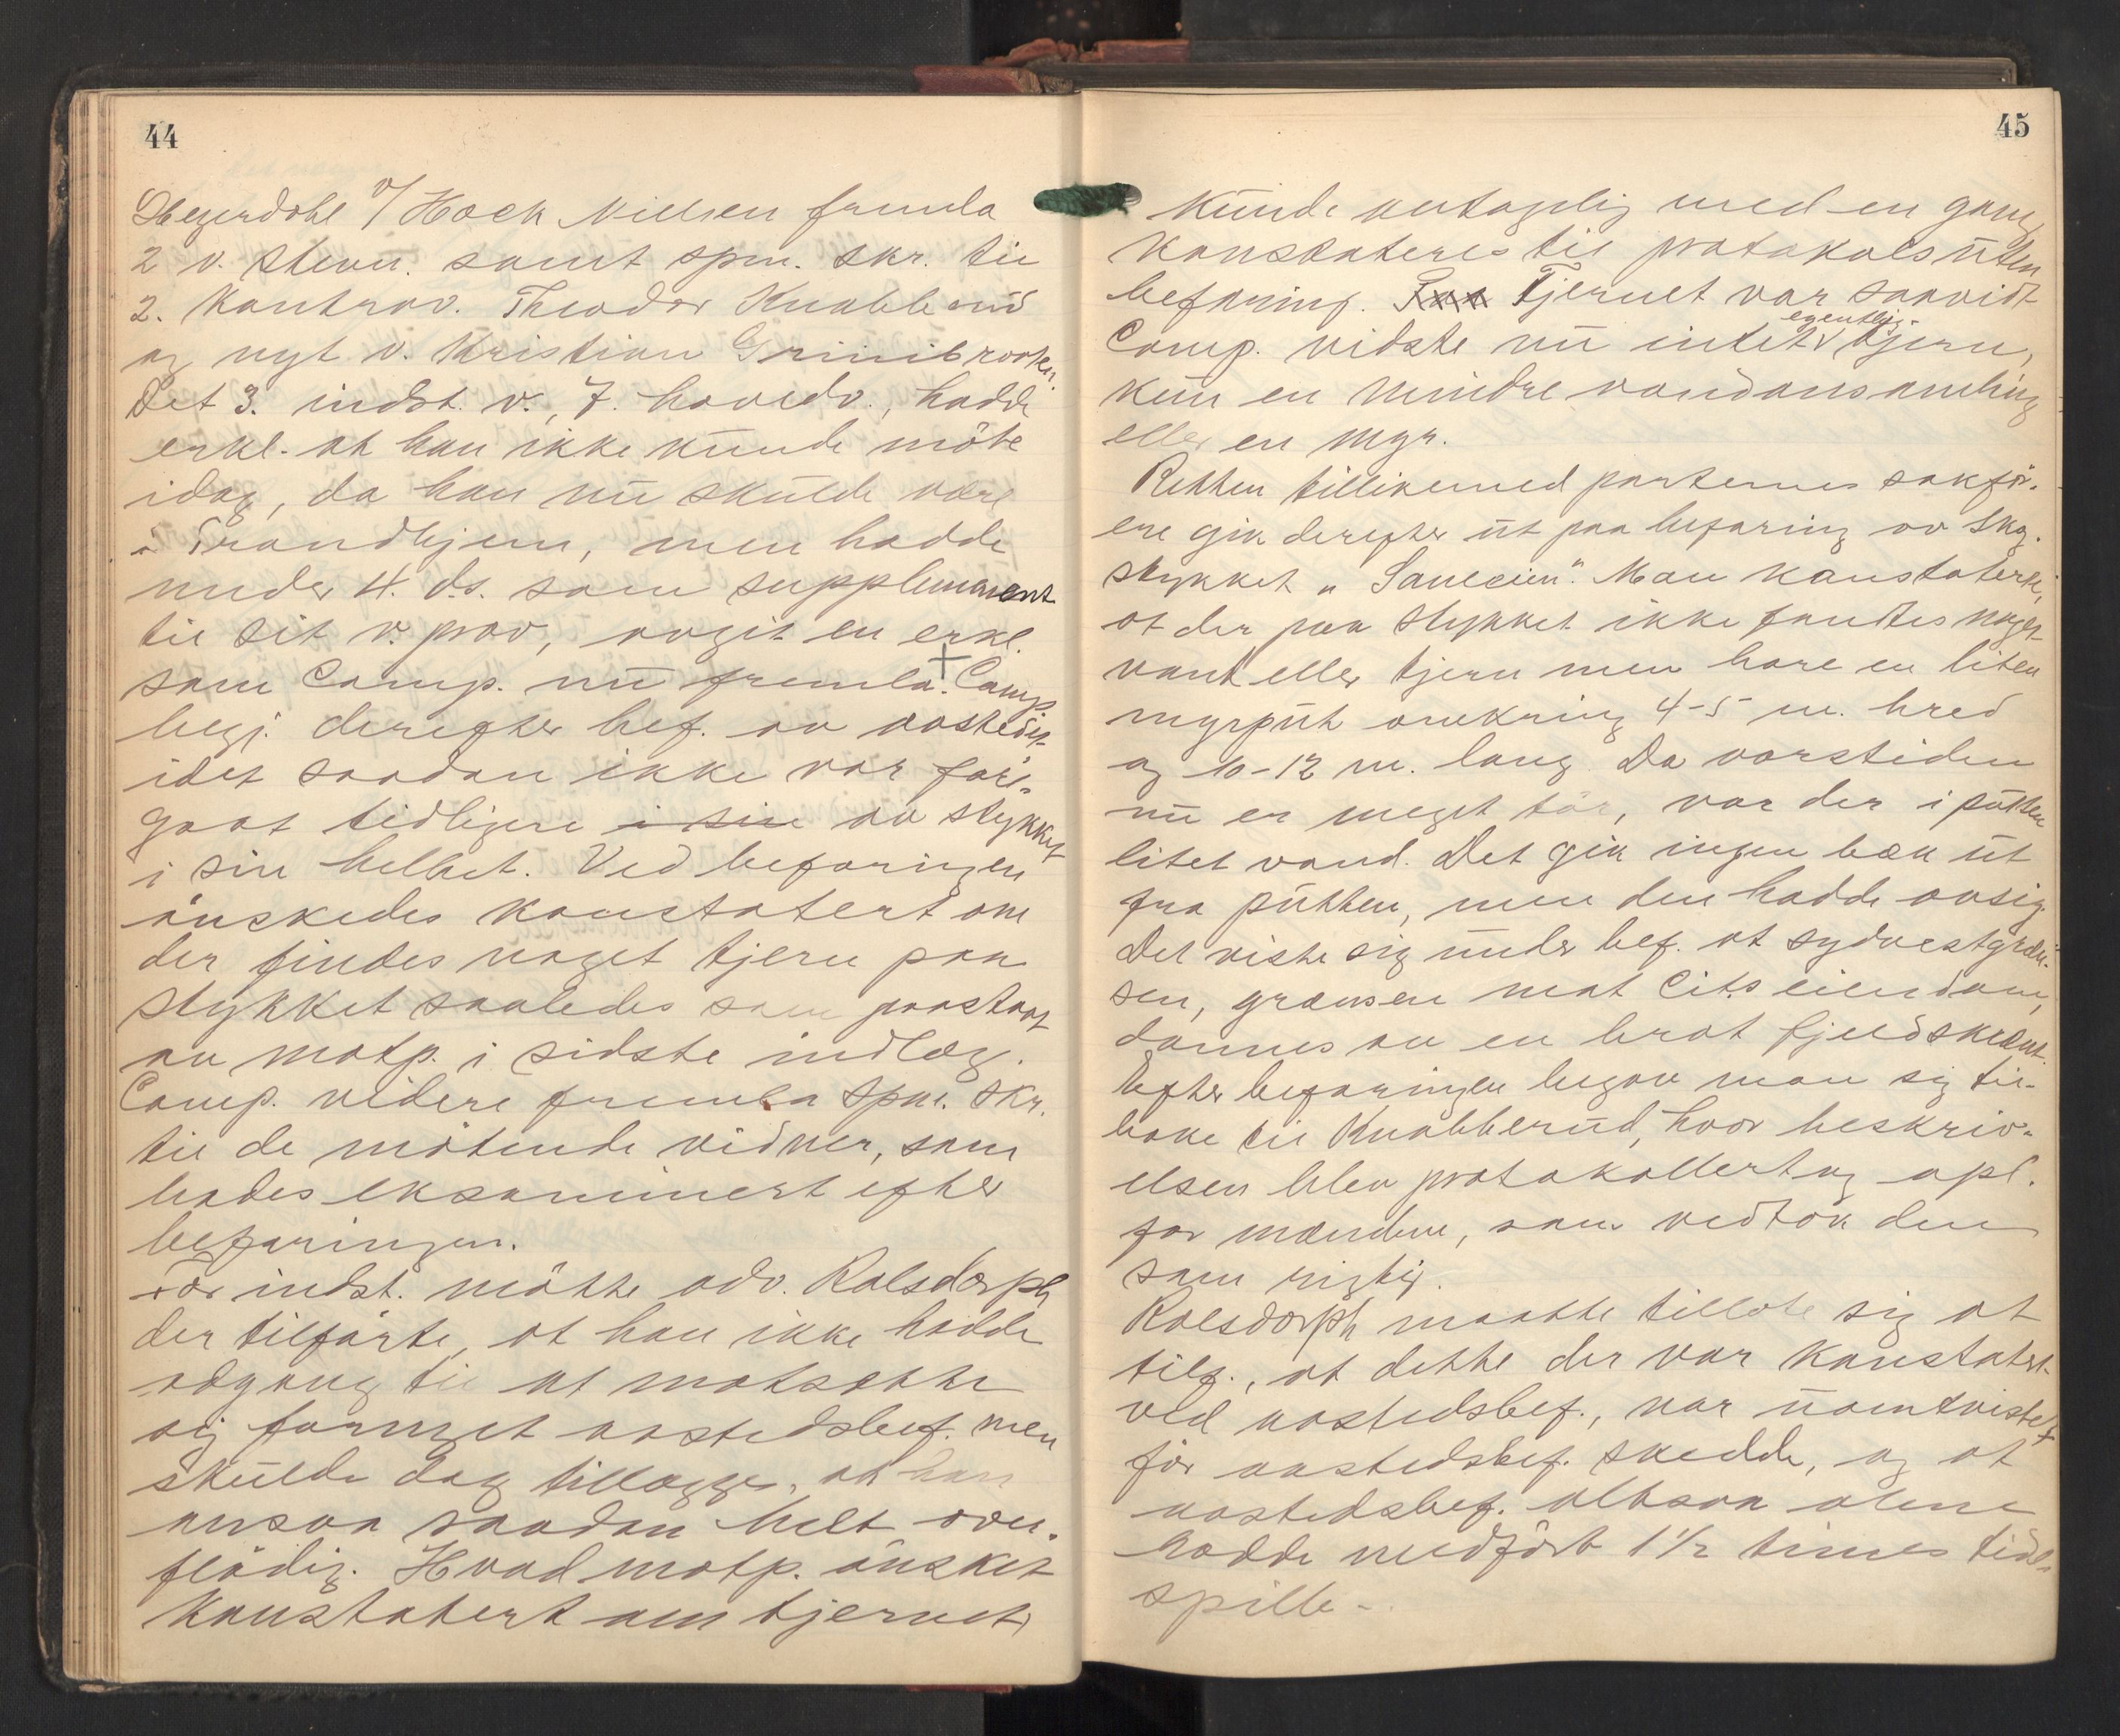 44
Hegerdahl v/ Hoek Nielsen fremla
2 v. stevn. samt spm. skr. til
2. kontrav. Theodor Knabberud
og nyt v. Kristian Grinibraaten.
Det 3. indst. v., 7. hovedv., hadde
erkl. at han ikke kunde möte
idag, da han nu skulde være
i Trondhjem, men hadde
under 4. ds. som supplement
til sit v. prov, avgit en erkl.
som Comp. nu fremla. Comp
begj. derefter bef. av aastedet
idet saadan ikke var fore-
gaat tidligere i sin av stykket
i sin helhet. Ved befaringen
önskedes konstatert om
der findes noget tjern paa
stykket saaledes som paastaat
av motp. i sidste indlæg.
Comp. videre fremla spm. skr.
til de mötende vidner, som
bades eksaminert efter
befaringen.
For indst. mötte adv. Rolsdorph
der tilförte, at han ikke hadde
adgang til at motsætte
sig forlanget aastedsbef. men
skulde dog tillægge, at han
ansaa saadan helt over-
flödig. Hvad motp. önsket
konstatert om tjernet,
45
kunde antagelig med en gang
konstateres til protokols uten
befaring. Tjernet var saavidt
Comp. vidste nu intet egentlig tjern,
kun en mindre vandansamling
eller en myr.
Retten tillikemed parternes sakför-
ere gik derefter ut paa befaring av skog-
stykket "Saueeien". Man konstaterte,
at der paa stykket ikke fandtes noget
vand eller tjern men bare en liten
myrput omkring 4-5 m. bred
og 10-12 m. lang. Da vaarstiden
nu er meget tör, var der i putten
litet vand. Det gik ingen bæk ut
fra putten, men den hadde avsig.
Det viste sig under bef. at sydvestgræn-
sen, grænsen mot Cit.s eiendom,
dannes av en brat fjeldskrænt.
Efter befaringen begav man sig til-
bake til Knabberud, hvor beskriv-
elsen blev protokollert og opl.
for mændene, som vedtok den
som rigtig.
Rolsdorph maatte tillate sig at
tilf., at dette der var konstatert
ved aastedsbef., var uomtvistet
för aastedsbef. skedde, og at
aastedsbef. altsaa alene
hadde medfört 1 1/2 times tids-
spille.